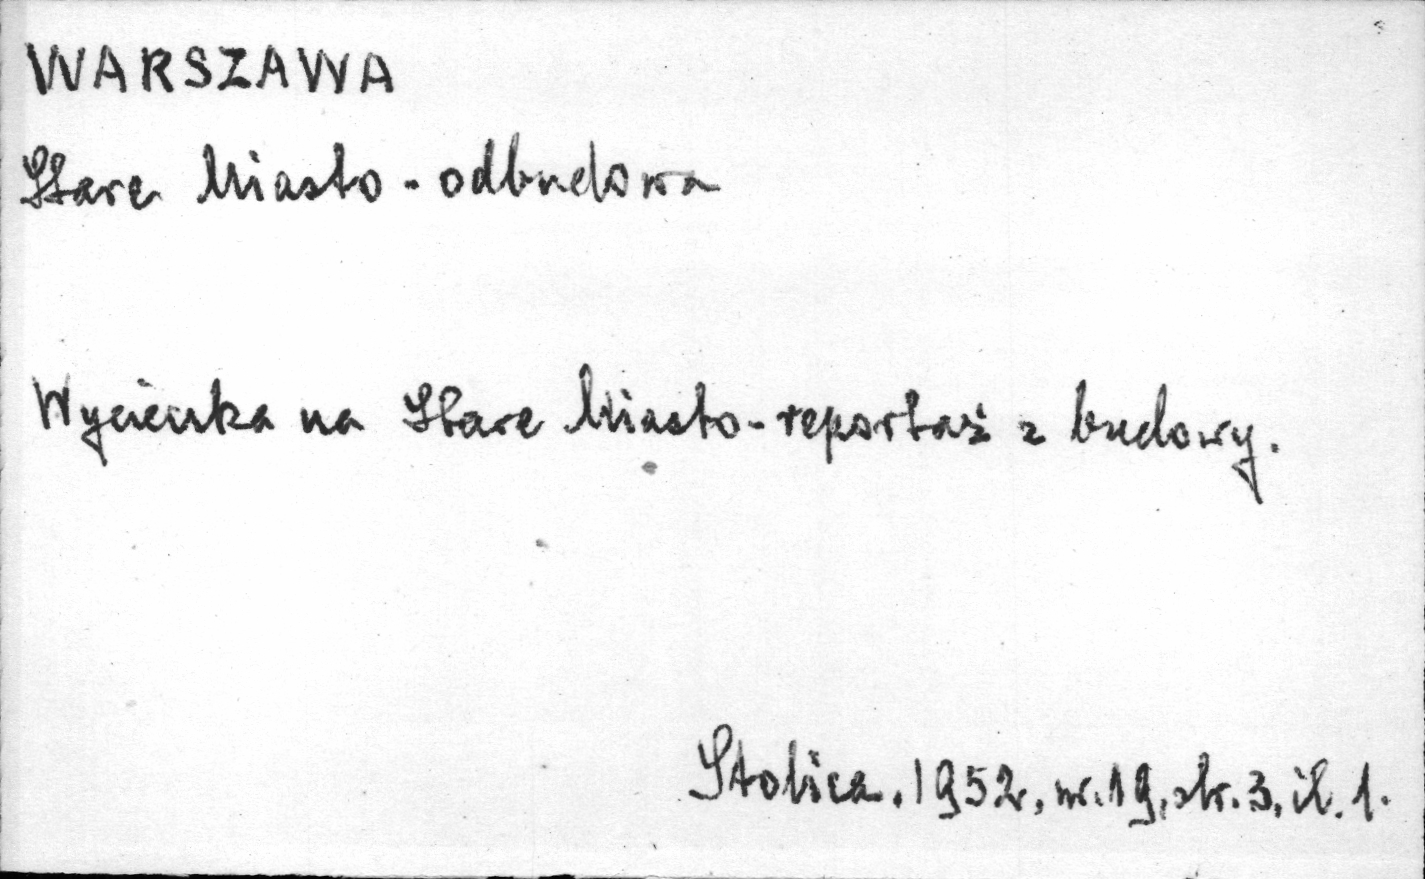 WARSZAWA
Stare Miasto - odbudowa
Wycieczka na Stare Miasto - reportaż z budowy.
Stolica. 1952, nr. 19, str. 3, il. 1.